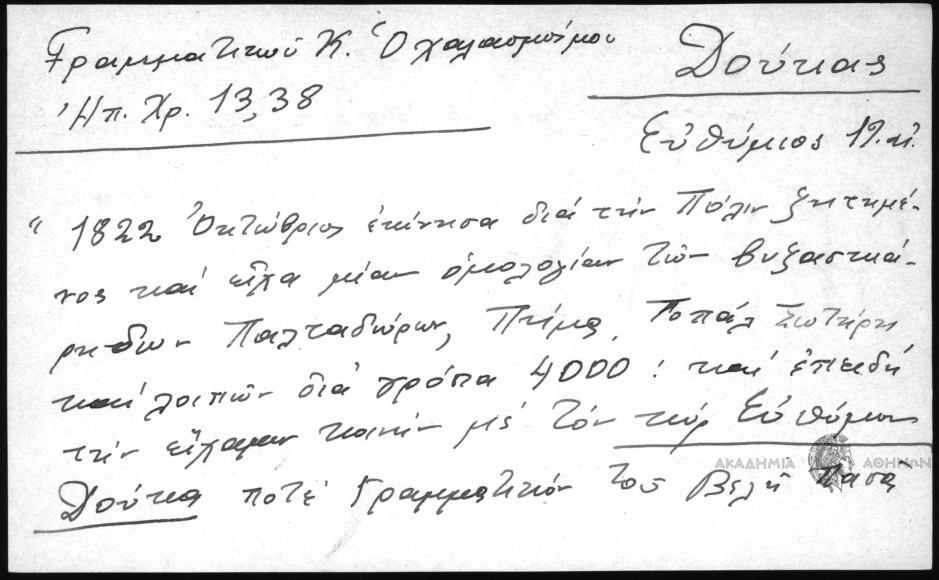 Γραμματικοῦ Κ. Ὁ χαλασμός μου
Ἠπ. Χρ. 13,38
Δούκας
Εὐθύμιος 19. κ.
" 1822 Ὀκτώβριος ἐκίνησα διά τήν Πόλιν ζητημέ-
νος καί εἶχα μίαν ὁμολογίαν τῶν
Παλταδώρων, Τοπάλ Σωτήρη
καί λοιπῶν διά γρόσια 4000 : καί ἐπειδή
τήν εἴχαμεν κοινήν μέ τόν κύρ Εὐθύμιον
Δούκα ποτέ Γραμματικόν τοῦ Βελῆ Πασᾶ
ΑΚΑΔΗΜΙΑ ΑΘΗΝΩΝ